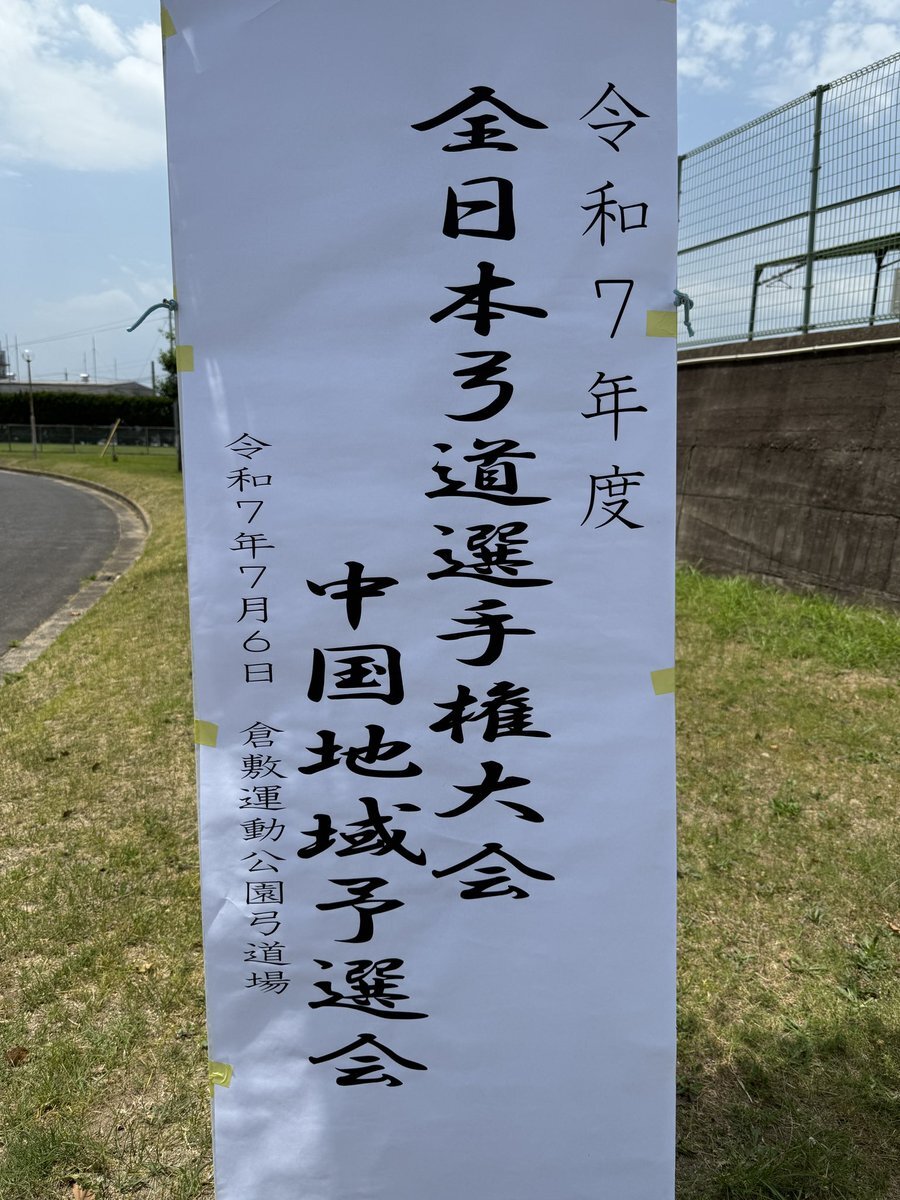 令和7年度
全日本弓道選手権大会
中国地域予選会
令和7年7月6日 倉敷運動公園弓道場